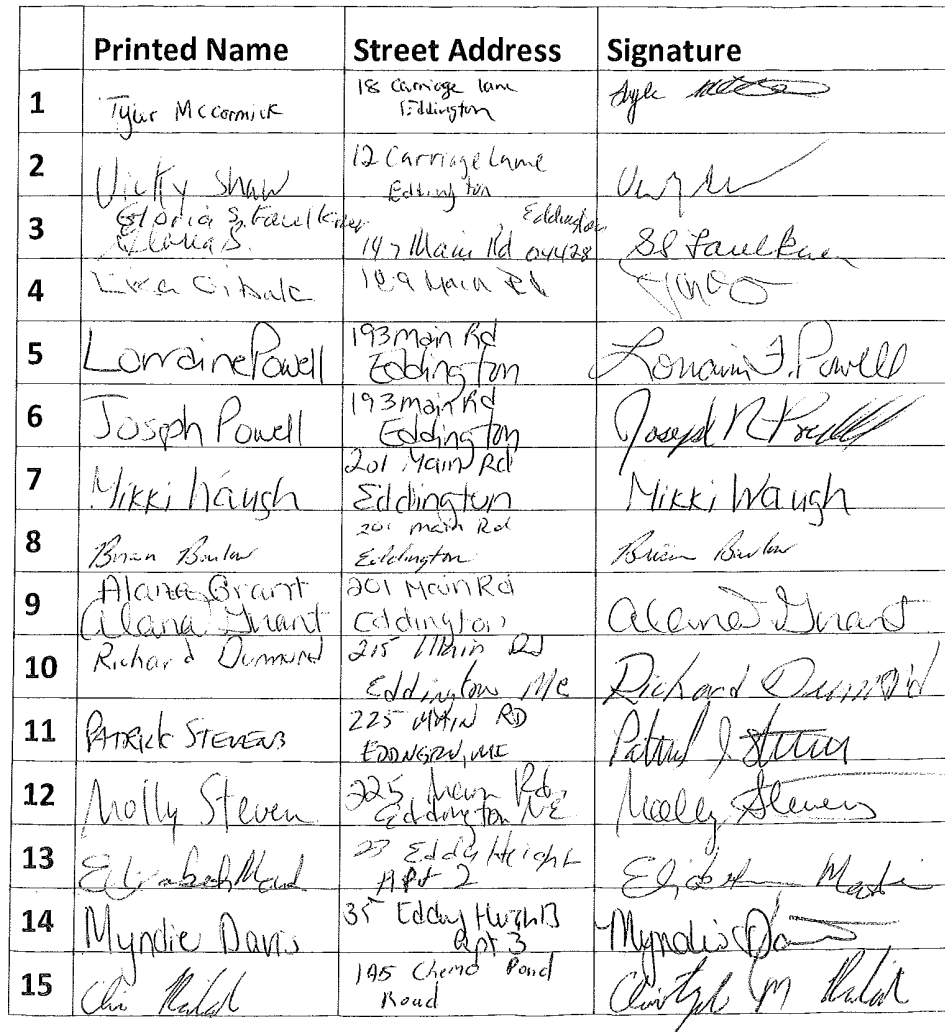 Printed Name Street Address Signature
1 Tyler McCormick 18 Carriage lane Eddington
2 Vicky Shaw 12 Carriage Lane Eddington
3 Gloria S. Faulkner Gloria S. 147 Main Rd 04428 Eddington SS Faulkner
4 Lisa 189 Main Rd
5 Lorraine Powell 193 Main Rd Eddington Lorraine F. Powell
6 Joseph Powell 193 main Rd Eddington Joseph R Powell
7 Mikki Waugh 201 Main Rd Eddington Mikki Waugh
8 Brian Barlow 201 main Rd Eddington Brian Barlow
9 Alana Grant Alana Grant 201 Main Rd Eddington Alana Grant
10 Richard Dummond 215 Main Rd Eddington Me Richard
11 PATRICK STEVENS 225 MAIN RD Patrick J. Stevens
12 Molly Steven 225 Main Rd. Eddington ME Molly Stevens
13 Elizabeth 23 Eddy Height Apt 2 Elizabeth
14 Myndie Davis 35 Eddy Apt 3 Myndie
15 195 Chemo Pond Road M